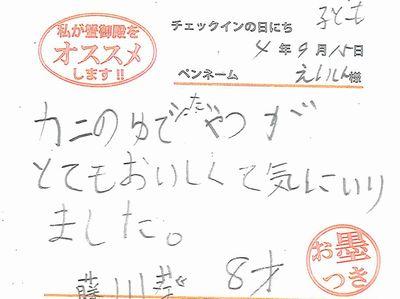 私が蟹御殿を
オススメ
します!!
チェックインの日にち
子ども
4年9月15日
ペンネーム えいしん様
カニのゆでたやつが
とてもおいしくて気にいり
ました。
8才
お墨
つき